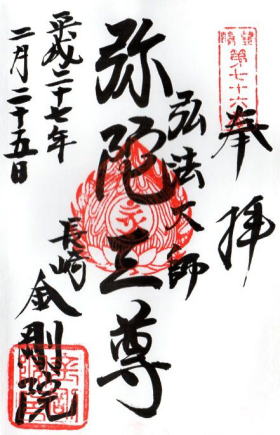 奉拝
第七十六
弘法大師
弥陀三尊
長崎
金剛院
平成二十七年
二月二十五日